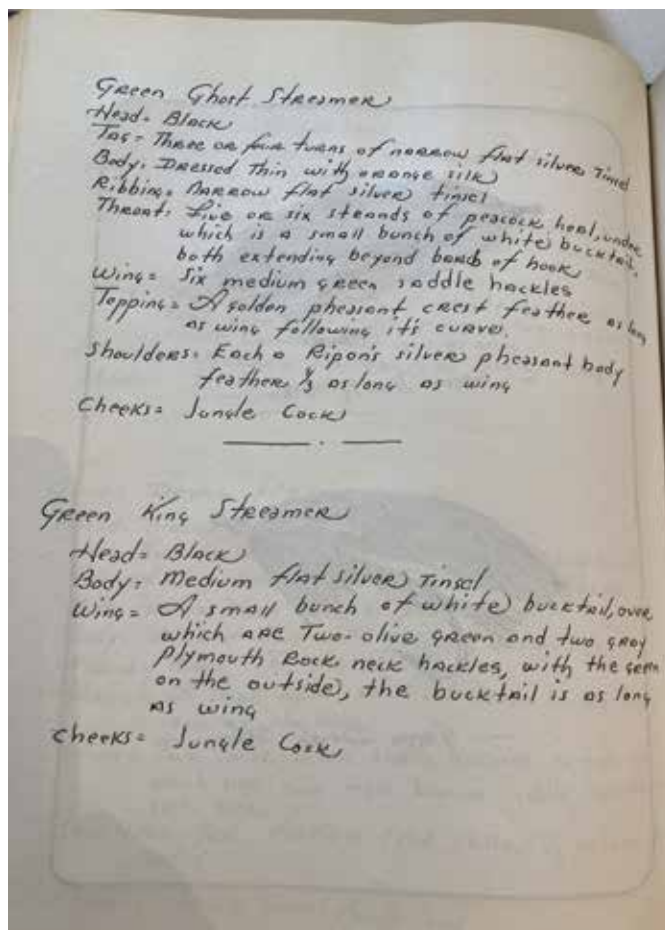 Green Ghost Streamer
Head = Black
Tag = Three or four turns of narrow flat silver Tinsel
Body. Dressed Thin with orange silk
Ribbing = Narrow flat silver tinsel
Throat. Five or six strands of peacock herl, under
which is a small bunch of white bucktail,
both extending beyond barb of hook
Wing = Six medium green saddle hackles
Topping = A golden pheasant crest feather as long
as wing following it's curve.
Shoulders. Each a Ripon's silver pheasant body
feather 1/3 as long as wing
Cheeks = Jungle Cock
Green King Streamer
Head = Black
Body = Medium flat silver Tinsel
Wing = A small bunch of white bucktail, over
which are Two- olive green and two gray
Plymouth Rock neck hackles, with the green
on the outside, the bucktail is as long
as wing
cheeks = Jungle Cock